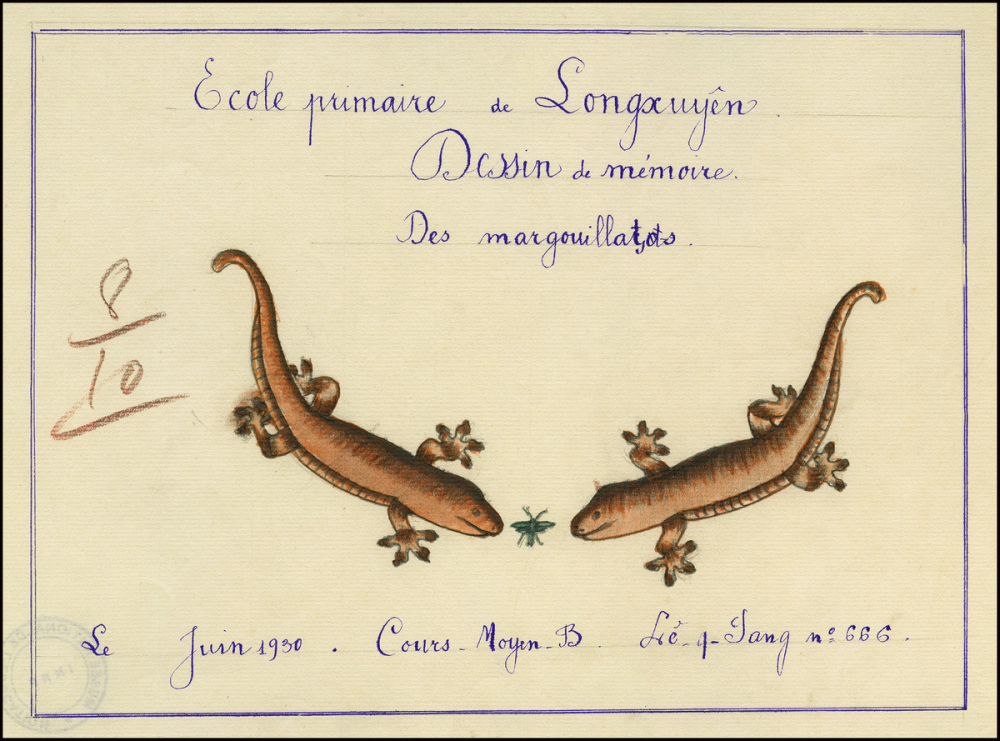 Ecole primaire de Longxuyên
Dessin de mémoire.
Des margouillats.
8
10
Le Juin 1930. Cours-Moyen-B Lê-q-Tang nº 666.